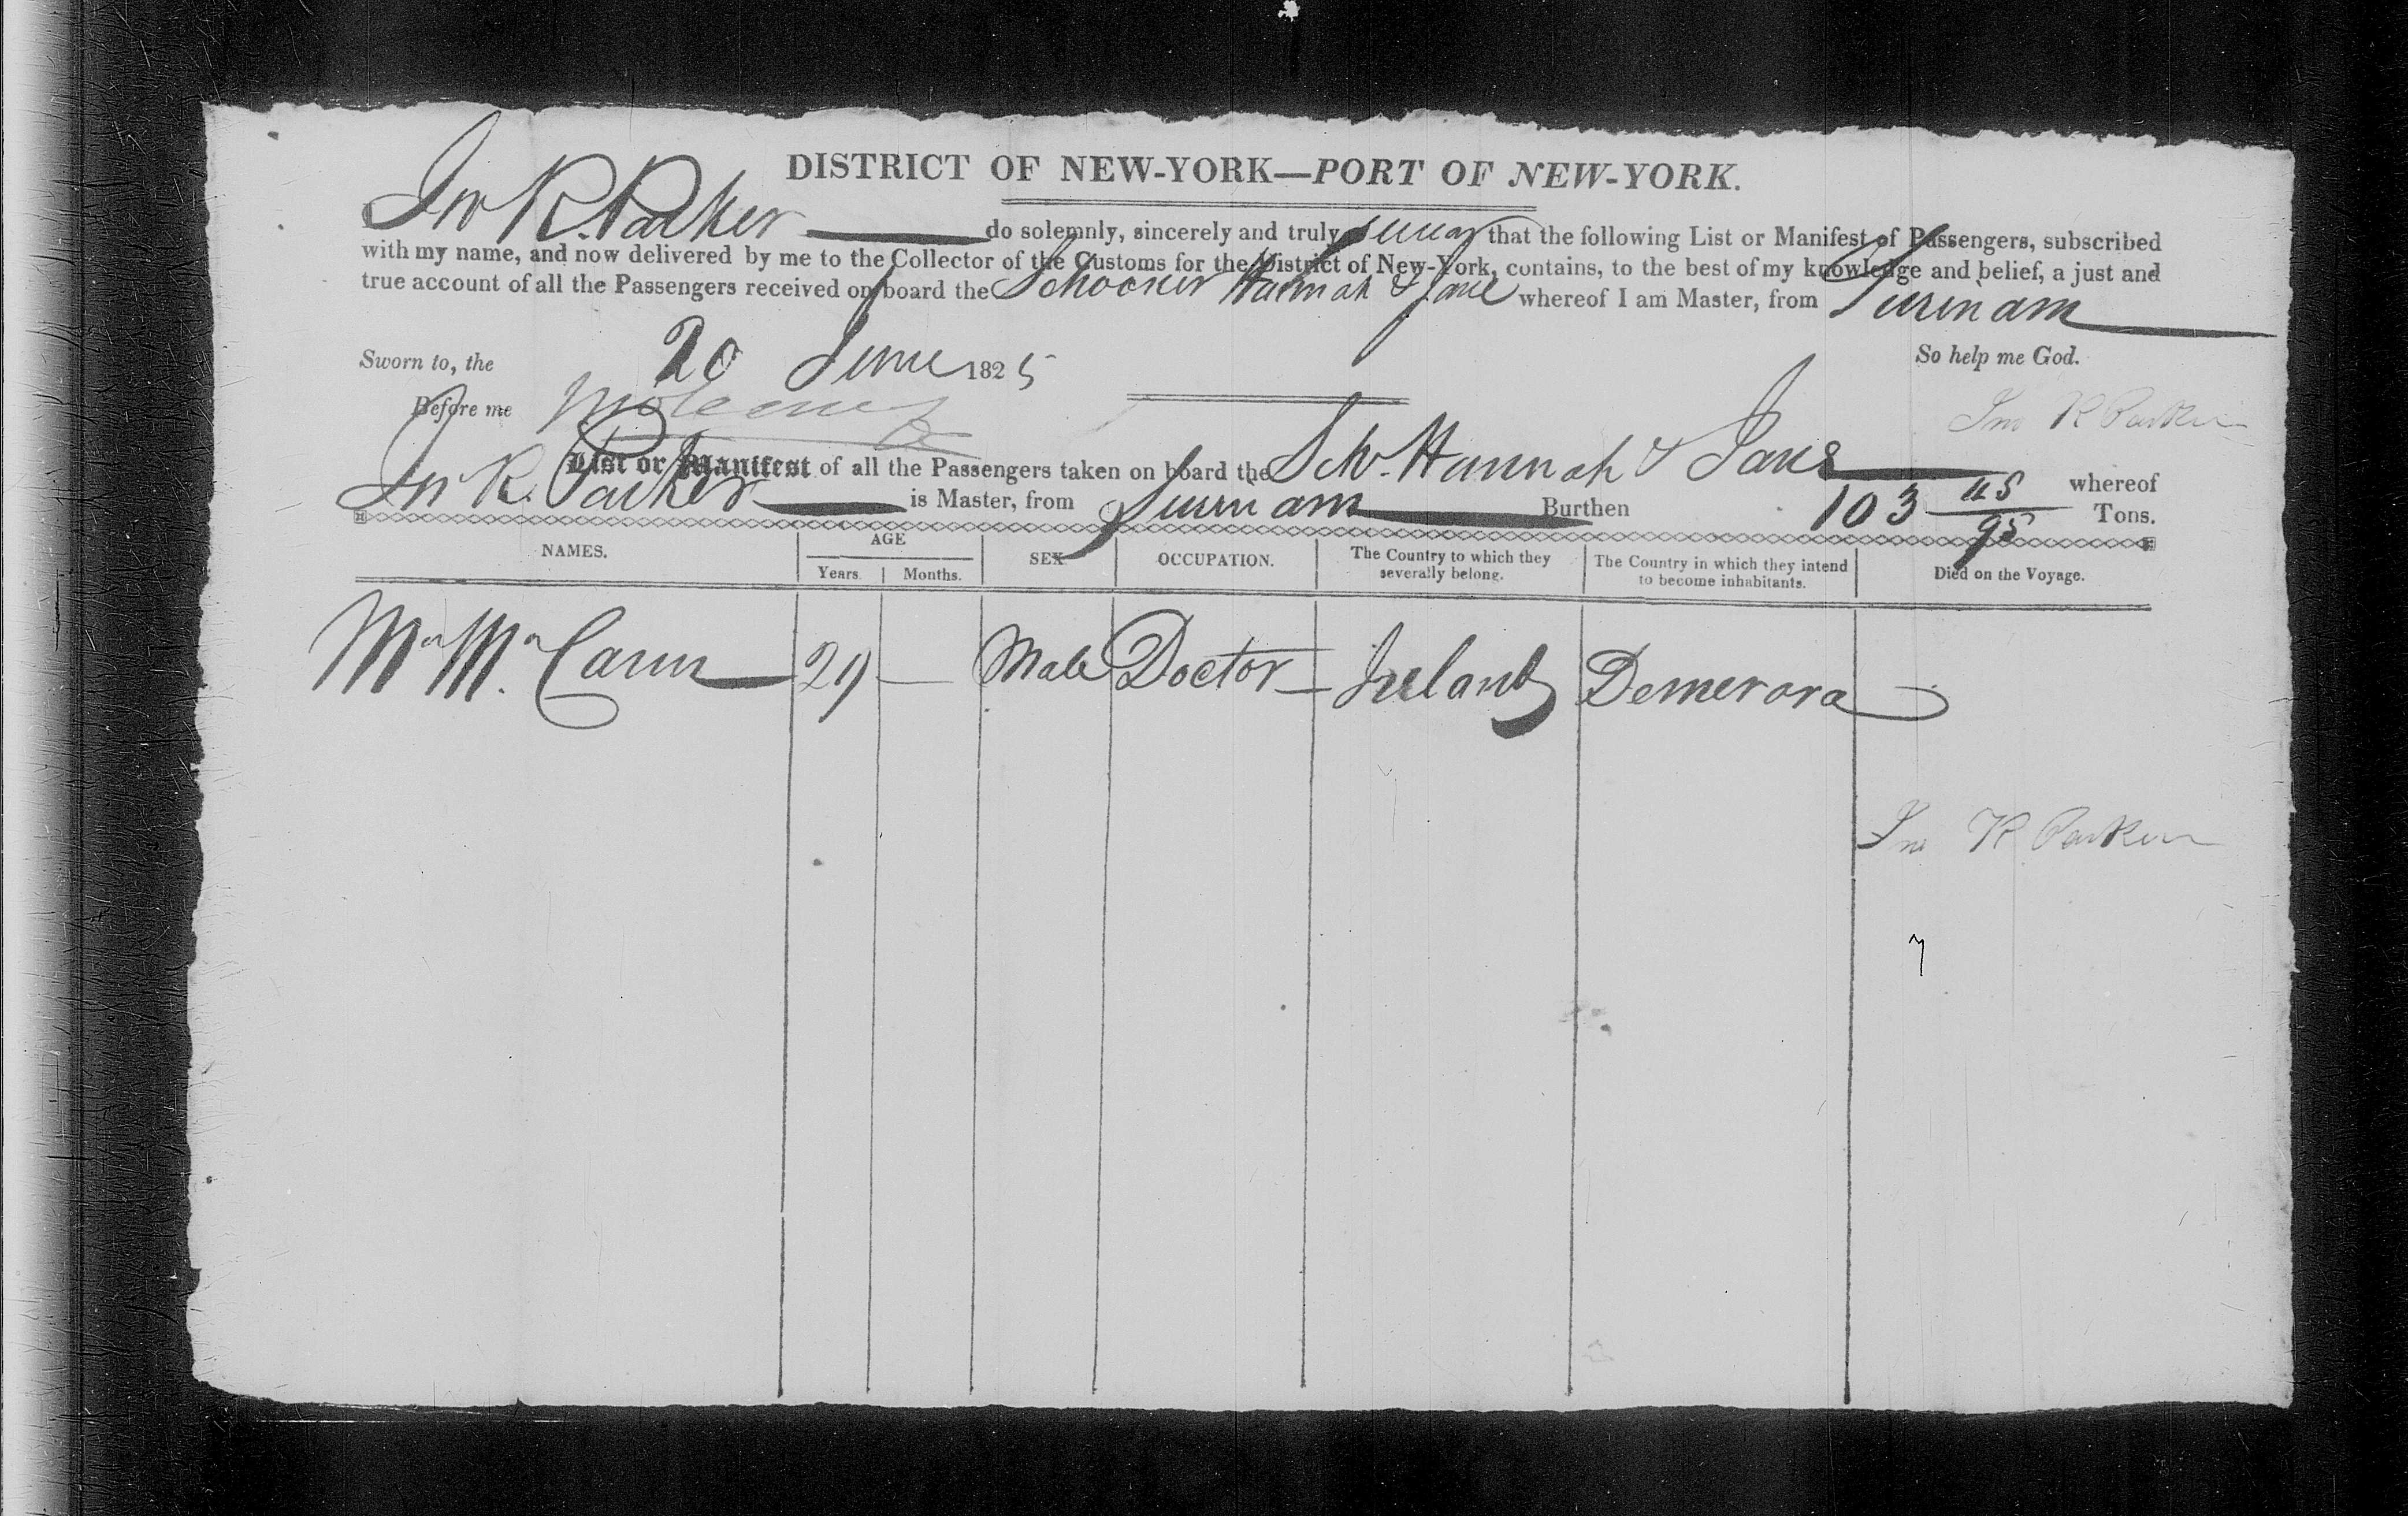 DISTRICT OF NEW-YORK—PORT OF NEW-YORK.
Jno R. Parker do solemnly, sincerely and truly swear that the following List or Manifest of Passengers, subscribed
with my name, and now delivered by me to the Collector of the Customs for the District of New-York, contains, to the best of my knowledge and belief, a just and
true account of all the Passengers received on board the Schooner Hannah & Jane whereof I am Master, from Surinam
Sworn to, the 20 June 1825 So help me God.
Before me
Jno R Parker
List or Manifest of all the Passengers taken on board the Schr. Hannah & Jane whereof
Jno R. Parker is Master, from Surinam Burthen 103 /95 Tons.
NAMES. AGE Years. Months. SEX OCCUPATION. The Country to which they severally belong. The Country in which they intend to become inhabitants. Died on the Voyage.
Mr Mc. Cann 29 — Male Doctor Ireland Demerara
Jno R Parker